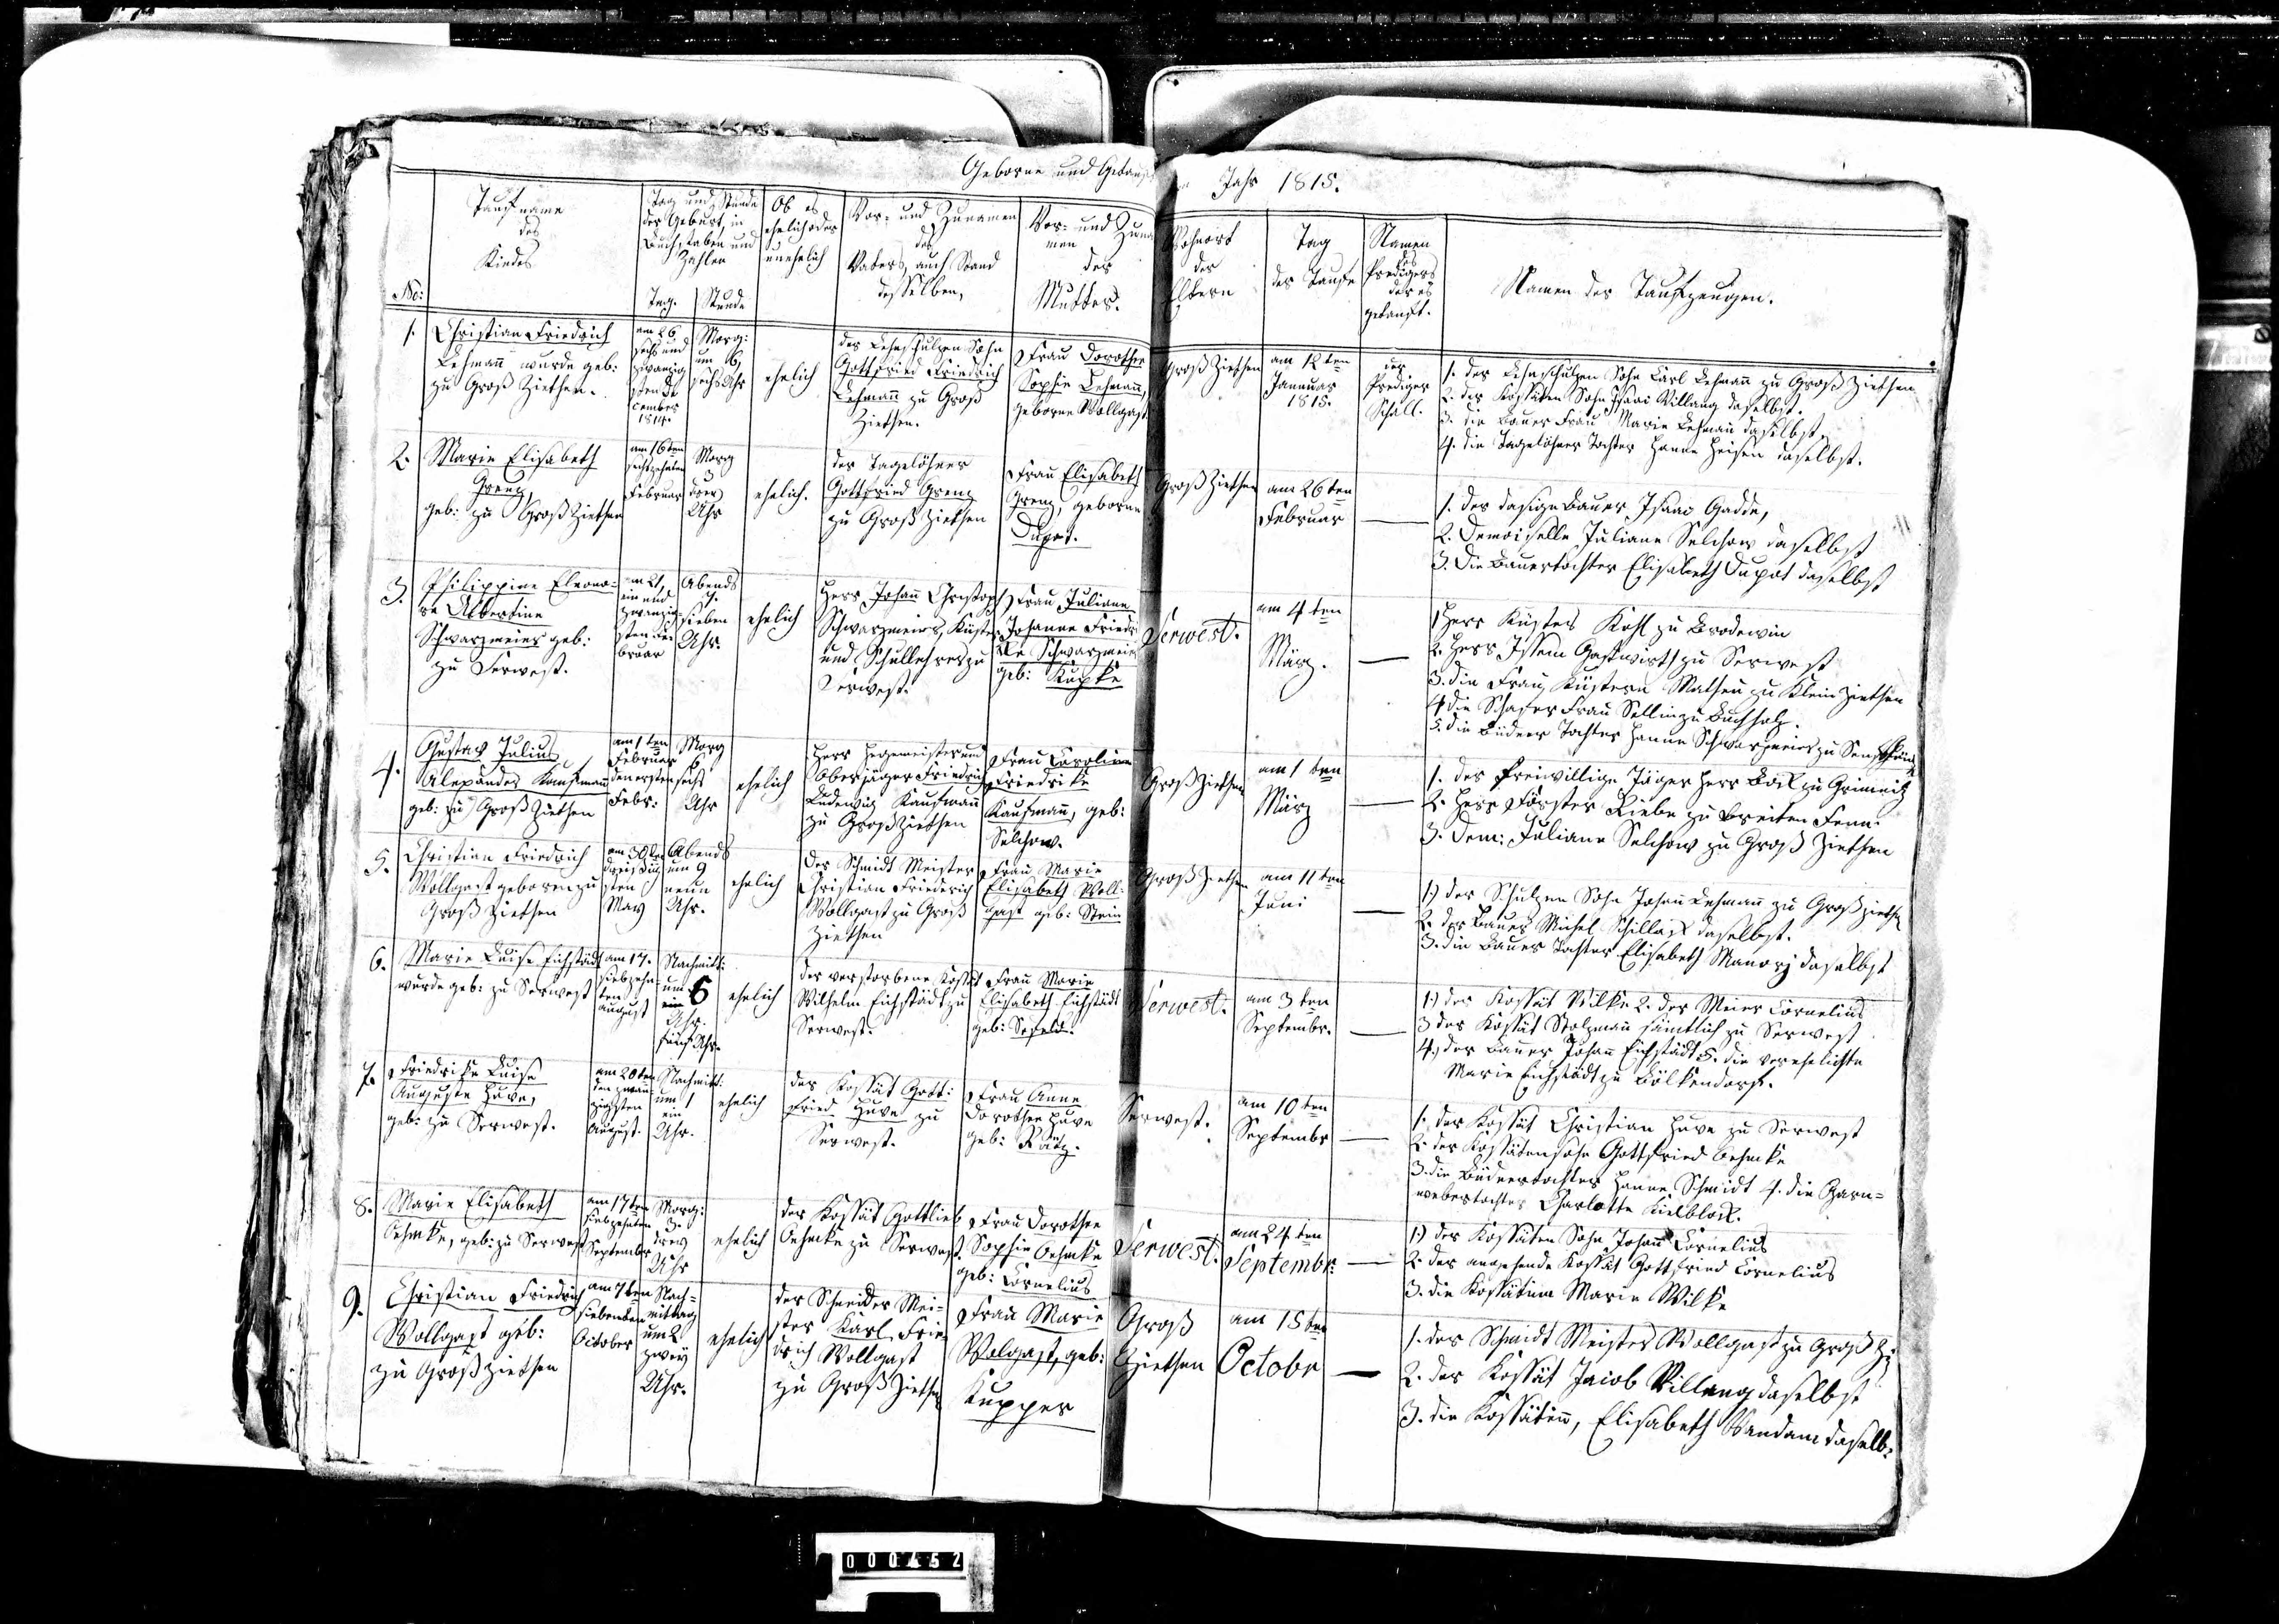 Geborne und Getauf
Jahr 1815.
No:
Taufname
des
Kindes
Tag und Stunde
der Geburt, in
Buchstaben und
Zahlen
Tag. Stunde
Ob es
ehelich oder
unehelich
Vor- und Zunamen
des
Vaters, auch Stand
desselben,
Vor- und Zuna
men
der
Mutter.
Wohnort
der
Eltern
Tag
der Taufe
Namen
des
Predigers
der es
getauft.
Namen der Taufzeugen.
1.
Christian Friedrich
Lehmann wurde geb:
zu Groß Ziethen.
am 26
sechs und
zwanzig
sten De
cember
1814.
Morg:
um 6,
sechs Uhr
ehelich
der Lehnschulzen Sohn
Gottfried Friedrich
Lehmann zu Groß
Ziethen.
Frau Dorothee
Sophie Lehmann,
geborne Wollgast
Groß Ziethen
am 12ten
Januar
1815.
der
Prediger
Schall.
1. der Lehnschulzen Sohn Carl Lehmann zu Groß Ziethen
2. der Kossäten Sohn Isaac Villang daselbst.
3. die Bauer Frau Marie Lehmann daselbst,
4. die Tagelöhner Tochter Hanne daselbst.
2.
Marie Elisabeth
Grenz,
geb: zu Groß Ziethen
am 16ten
sechszehnten
Februar
Morg
3
drey
Uhr
ehelich.
der Tagelöhner
Gottfried Grenz
zu Groß Ziethen
Frau Elisabeth
Grenz, geborne
Dupot.
Groß Ziethen
am 26ten
Februar
1. der dasige Bauer Isaac Gadde,
2. Demoiselle Juliane Selchow daselbst
3. Die Bauertochter Elisabeth Dupot daselbst
3.
Philippine Eleono-
re Albertine
Schwarzmeier geb:
zu Serwest.
am 21,
ein und
zwanzig-
sten Fe
bruar
Abends
7.
sieben
Uhr.
ehelich
Herr Johann Christoph
Schwarzmeier, Küster
und Schullehrer zu
Serwest.
Frau Juliane
Johanne Friedri
ke Schwarzmeier
geb: Kupke
Serwest.
am 4ten
März.
1 Herr Küster Kohl zu Brodewin
2. Herr Gastwirth zu Serwest
3. die Frau Küstern Mathen zu Klein Ziethen
4 die Schäfer Frau Sellin zu Buchholz.
5. die Büdner Tochter Hanne Schwarzmeier zu
4.
Gustav Julius
Alexander Kaufmann
geb: zu Groß Ziethen
am 1ten
Februar
den ersten
Febr:
Morg
6
sechs
Uhr
ehelich
Herr Hegemeister und
Oberjäger Friedrich
Ludewig Kaufmann
zu Groß Ziethen
Frau Caroline
Friedrike
Kaufmann, geb:
Selchow.
Groß Ziethen
am 1ten
März
1. der freiwillige Jäger Herr Bock zu Grimnitz
2. Herr Förster Liebe zu Breiten Fenn.
3. Dem: Juliane Selchow zu Groß Ziethen
5.
Christian Friedrich
Wollgast geboren zu
Groß Ziethen
am 30ten
dreißig
sten
May
Abends
um 9
neun
Uhr.
ehelich
der Schmidt Meister
Christian Friederich
Wollgast zu Groß
Ziethen
Frau Marie
Elisabeth Woll-
gast geb: Stein
Groß Ziethen
am 11ten
Juni
1.) der Schulzen Sohn Johann Lehmann zu Groß Zieth
2. der Bauer Michel daselbst.
3. die Bauer Tochter Elisabeth daselbst
6.
Marie Luise Eichstädt
wurde geb: zu Serwest
am 17.
siebzehn
ten
August
Nachmitt:
um 5
ein
Uhr.
fünf Uhr.
ehelich
der verstorbene Kossät
Wilhelm Eichstädt zu
Serwest.
Frau Marie
Elisabeth Eichstädt
geb: Sefeld.
Serwest.
am 3ten
Septembr.
1.) der Kossät Wilke 2. der Meier Cornelius
3 der Kossät Stolzmann sämtlich zu Serwest
4., der Bauer Johann Eichstädt 5. die verehelichte
Marie Eichstädt zu Bölkendorf.
7.
Friedrike Luise
Auguste Huve,
geb: zu Serwest.
am 20ten
den zwan-
zigsten
August.
Nachmitt:
um 1
ein
Uhr.
ehelich
der Kossät Gott:
fried Huve zu
Serwest.
Frau Anne
Dorothee Huve
geb: Rätz.
Serwest.
am 10ten
Septembr
1. der Kossät Christian Huve zu Serwest
2. der Kossätensohn Gottfried Oehmke
3. die Büdnertochter Hanne Schmidt 4. die Garn-
webertochter Charlotte Kielblock.
8.
Marie Elisabeth
Oehmke, geb: zu Serwest
am 17ten
siebzehnten
Septembr
Morg:
3.
drey
Uhr
ehelich
der Kossät Gottlieb
Oehmke zu Serwest.
Frau Dorothee
Sophie Oehmke
geb: Cornelius
Serwest.
am 24ten
Septembr:
1.) der Kossäten Sohn Johann Cornelius
2. der angehende Kossät Gottfried Cornelius
3. die Kossätinn Marie Wilke
9.
Christian Friedrich
Wollgast geb:
zu Groß Ziethen
am 7ten
siebenden
October
Nach-
mittag
um 2
zwey
Uhr.
ehelich
der Schneider Mei-
ster Karl Frie
drich Wollgast
zu Groß Ziethen
Frau Marie
Wolgast, geb:
Kupper
Groß
Ziethen
am 15ten
Octobr
1. der Schmidt Meister Wollgast zu Groß Z:
2. der Kossät Jacob Villang daselbst
3. die Kossätinn, Elisabeth Vandam daselb:
000452